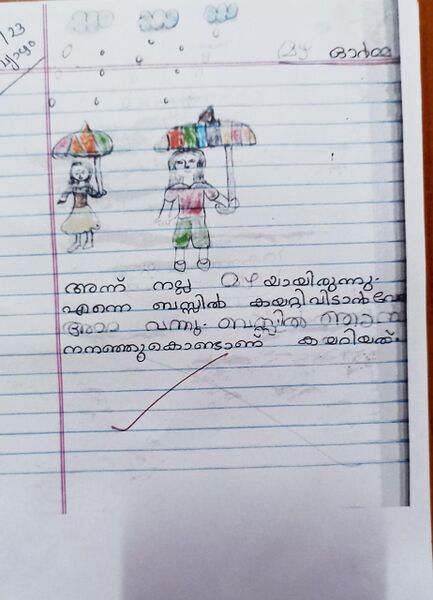 /23
മഴ ഓർമ്മ
അന്ന് നല്ല മഴയായിരുന്നു.
എന്നെ ബസ്സിൽ കയറ്റിവിടാൻ
അമ്മ വന്നു. ബസ്സിൽ ഞാൻ
നനഞ്ഞുകൊണ്ടാണ് കയറിയത്.